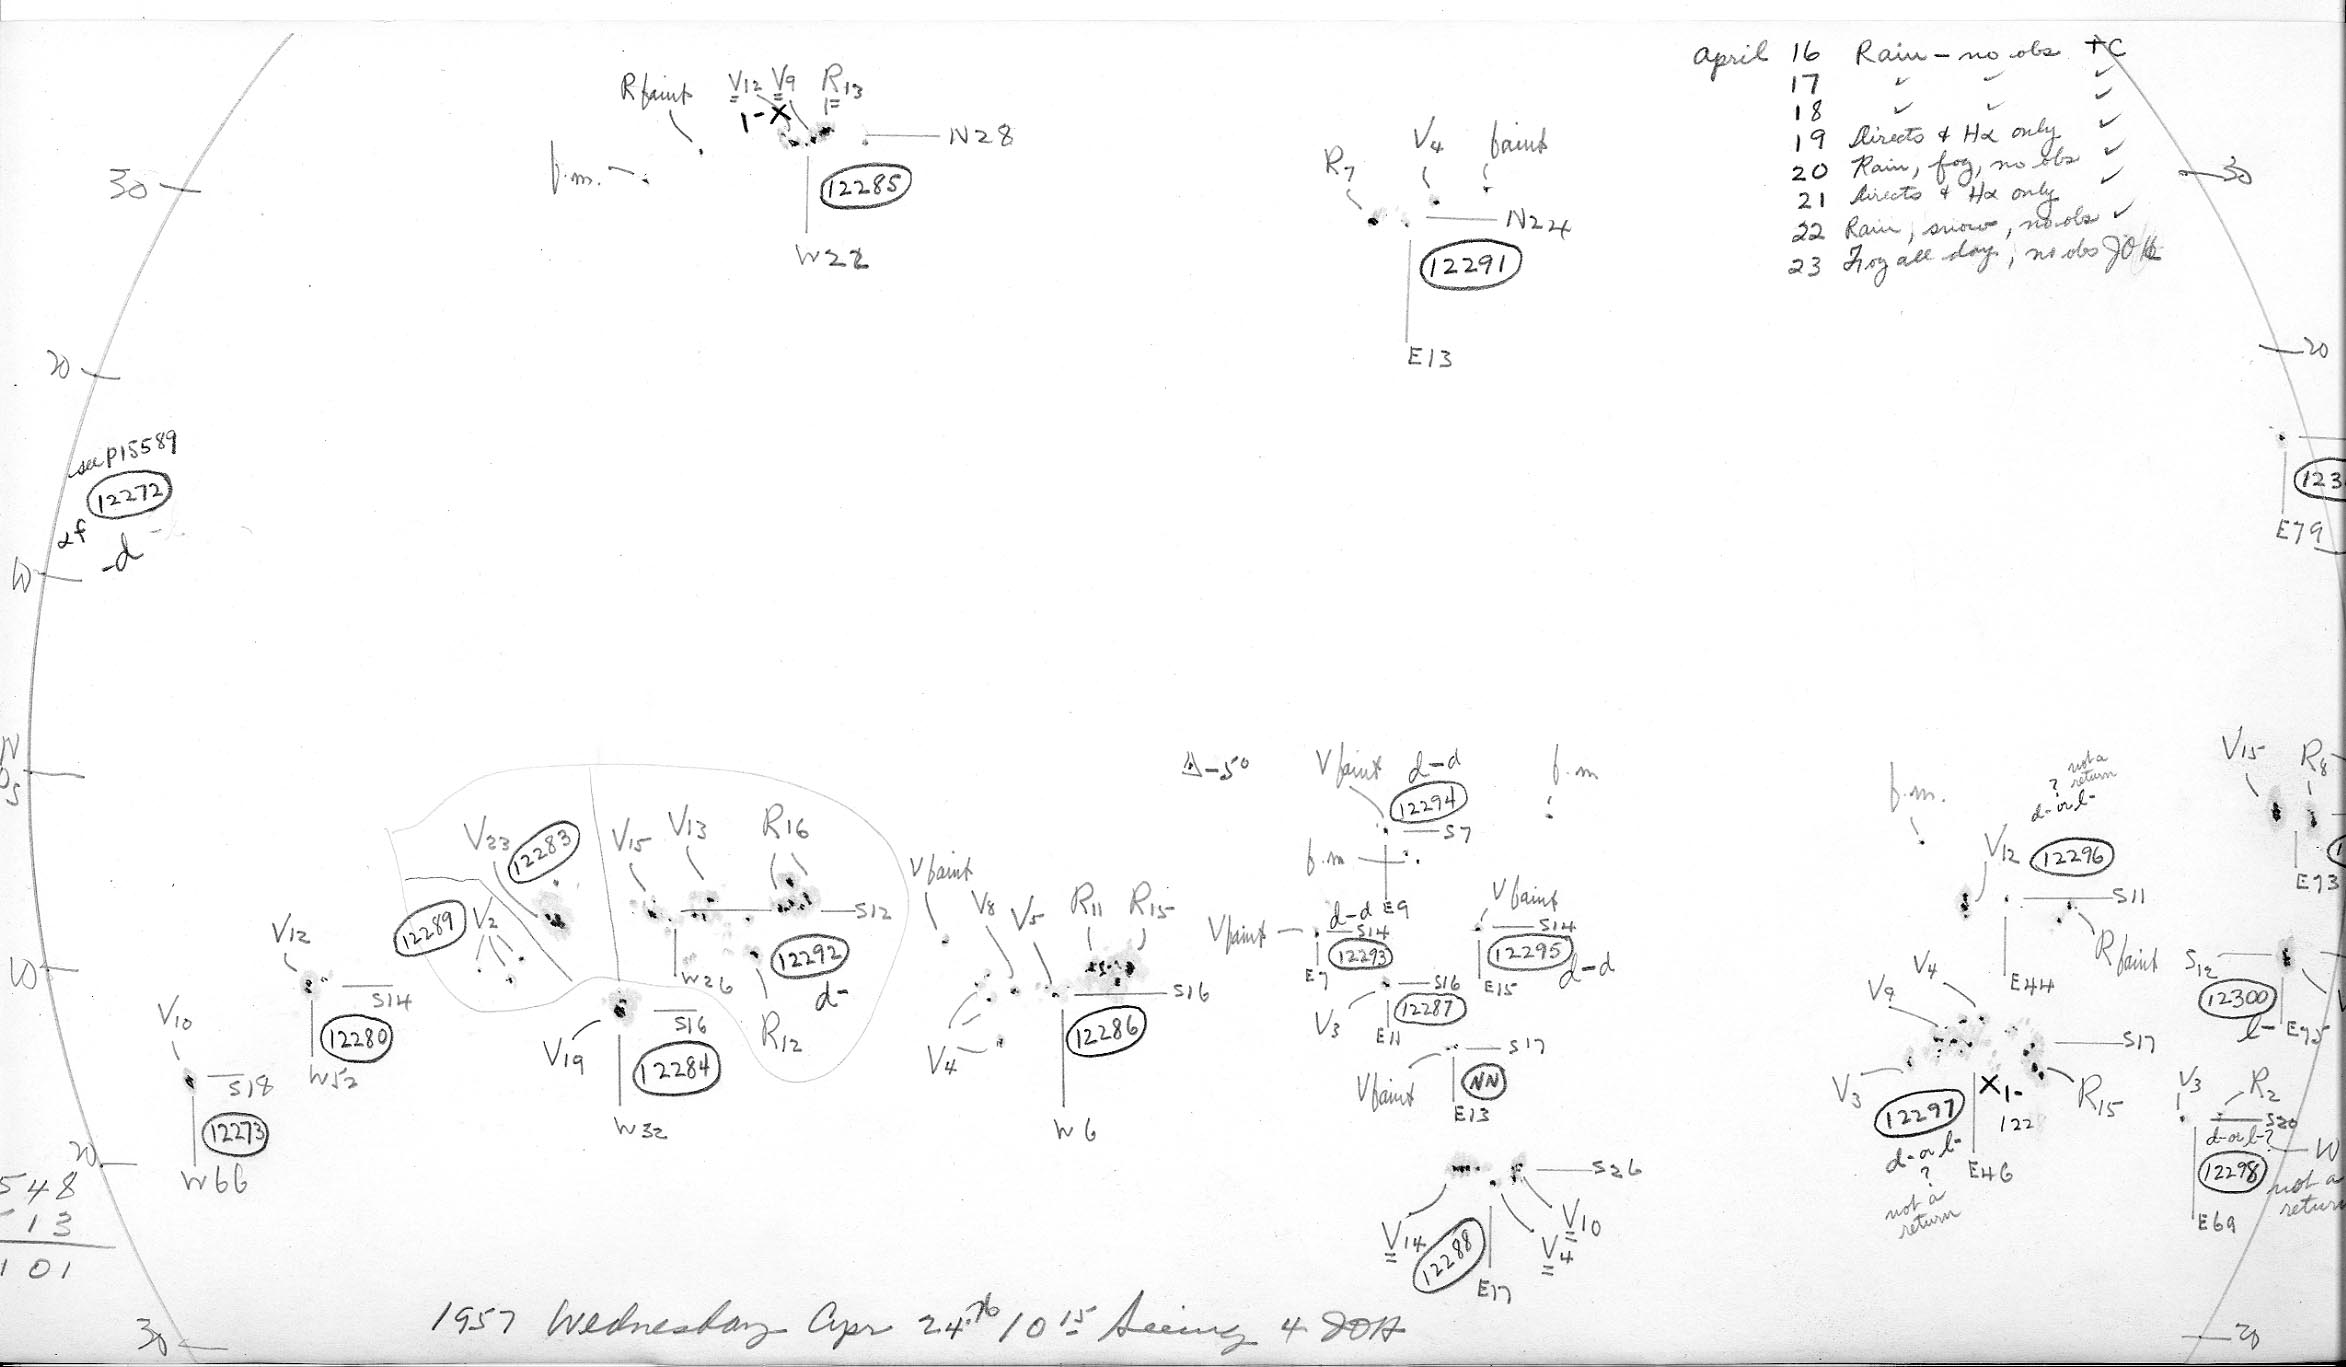 April 16 Rain - no obs TC
17 ✓ ✓ ✓
18 ✓ ✓ ✓
19 Directs & Hα only ✓
20 Rain, fog, no obs ✓
21 Directs & Hα only ✓
22 Rain, snow, no obs ✓
23 Fog all day, no obs JOH
R faint V12 V9 R13
1-X
f.m.
N28
12285
W22
R7 V4 faint
N24
12291
E13
30
30
20
20
see P15589
12272
αf
-d
10
E79
N
0
S
Δ-5°
V faint d-d
12294
S7
f.m
f.m
E9
V23 12283
V15 V13 R16
S12
12289 V2
W26
12292
d-
R12
V12
S14
12280
W52
V10
S18
12273
W66
V19
S16
12284
W32
V faint V8 V5 R11 R15
S16
V4
12286
W6
V faint d-d
S14
12293
E7
V faint
S14
12295
d-d
E15
S16
V3
12287
E11
S17
V faint
NN
E13
S26
V14 12288 V10
V4
E17
f.m.
? not a return
d- or l-
V12 12296
S11
R faint
E44
V9 V4
S17
V3
X1-
R15
12297
122
d- or l-
?
not a
return
E46
V15 R8
E73
S12
12300
l- E75
V3 R2
S20
d- or l-?
12298
not a
return
E69
10
20
548
-13
101
30
20
1957 Wednesday Apr 24th 10 15 Seeing 4 JOH